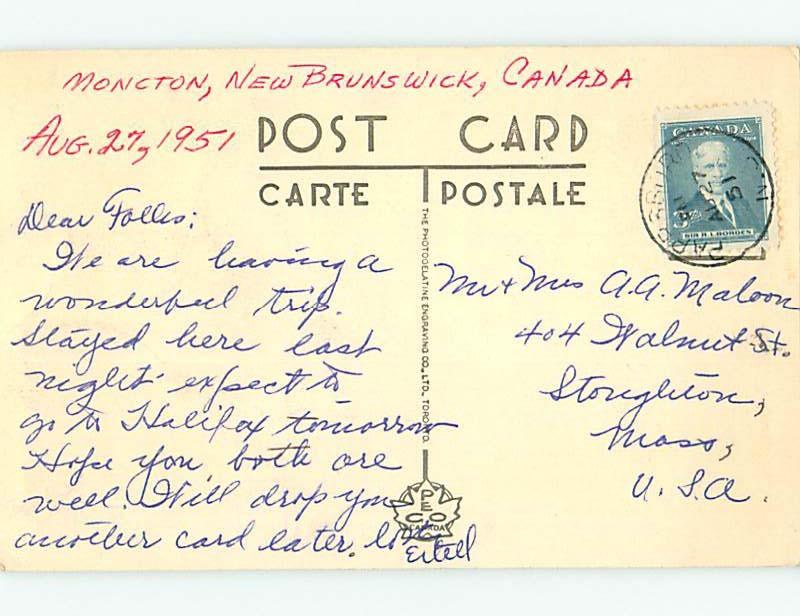 MONCTON, NEW BRUNSWICK, CANADA
AUG. 27, 1951
POST CARD
CARTE POSTALE
CANADA
3
SIR R.L. BORDEN
PARRSBORO
AU 27
51
N.S.
Dear Folks:
We are having a
wonderful trip.
Stayed here last
night expect to
go to Halifax tomorrow
Hope you both are
well. Will drop you
another card later.
Mr & Mrs A.A. Maloon
404 Walnut St.
Stoughton,
Mass,
U.S.A.
THE PHOTOGELATINE ENGRAVING CO., LTD., TORONTO.
PECO
CANADA